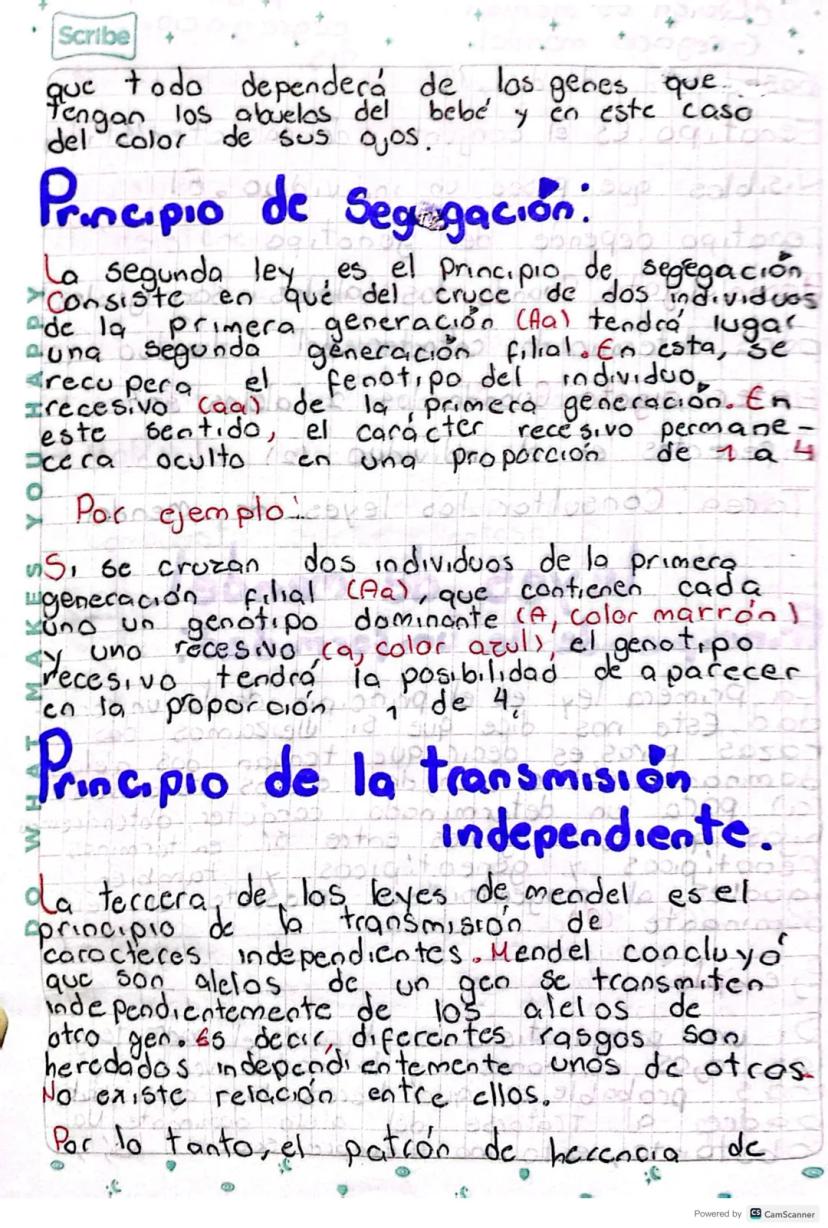 Scribe
que todo dependerá de los genes que
tengan los abuelos del bebé y en este caso
del color de sus ojos.
Principio de Segregación:
La segunda ley es el Principio de segegación
Consiste en que del cruce de dos individuos
de la primera generación (Aa) tendrá lugar
una segunda generación filial. En esta, se
recupera el fenotipo del individuo
recesivo (aa) de la primera generación. En
este sentido, el carácter recesivo permane-
cera oculto en una proporción de 1 a 4
Por ejemplo:
Si se cruzan dos individuos de la primera
generación filial (Aa), que contienen cada
uno un genotipo dominante (A, color marrón)
y uno recesivo (a, color azul), el genotipo
recesivo tendrá la posibilidad de aparecer
en la proporción 1 de 4.
Principio de la transmisión
independiente.
La tercera de las leyes de mendel es el
principio de la transmisión de
caracteres independientes. Mendel concluyó
que son alelos de un gen se transmiten
independientemente de los alelos de
otro gen. Es decir, diferentes rasgos son
heredados independientemente unos de otros.
No existe relación entre ellos.
Por lo tanto, el patrón de herencia de
DO WHAT MAKES YOU HAPPY
Powered by CS CamScanner